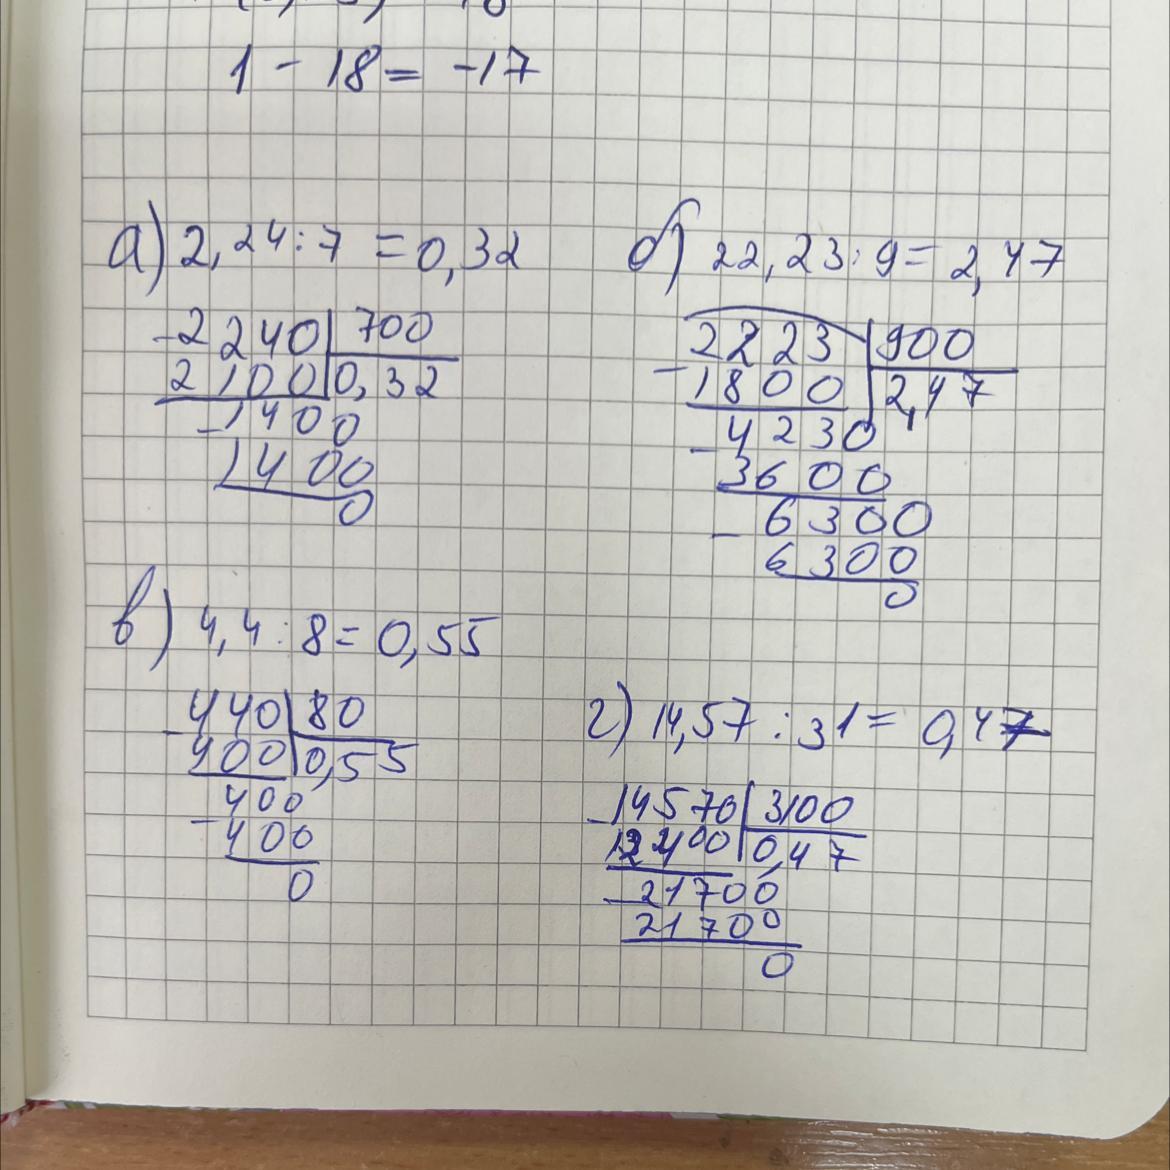 1 - 18 = -17
а) 2,24 : 7 = 0,32
- 2240 | 700
2100 | 0,32
- 1400
1400
0
б) 22,23 : 9 = 2,47
2223 | 900
- 1800 | 2,47
- 4230
3600
- 6300
6300
0
в) 4,4 : 8 = 0,55
- 440 | 80
400 | 0,55
- 400
400
0
г) 14,57 : 31 = 0,47
- 14570 | 3100
12400 | 0,47
- 21700
21700
0